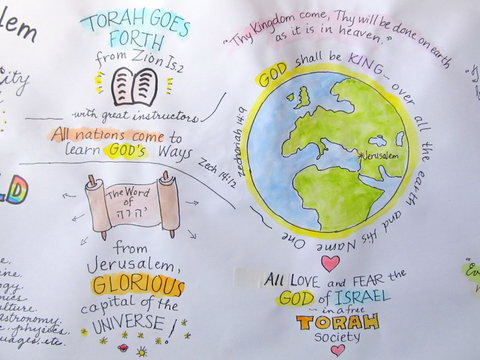 TORAH GOES
FORTH
from Zion Is2
with great instructors
All nations come to
learn GOD's Ways
The Word
of
יהוה
from
Jerusalem,
GLORIOUS
capital of the
UNIVERSE!
"Thy Kingdom come, Thy will be done on earth
as it is in heaven."
GOD shall be KING... over all the earth and His Name One
Zechariah 14:9
Zech 14:12
Jerusalem
All LOVE and FEAR the
GOD of ISRAEL
in a true
TORAH
society
alem
ity
LD
astronomy,
physics,
uages, etc.